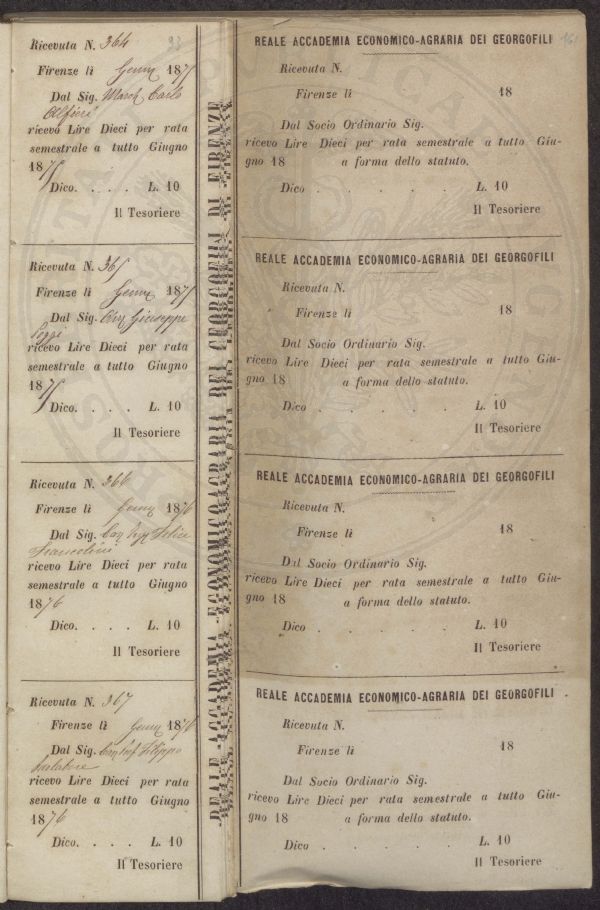 Ricevuta N. 364
93
Firenze lì Genn 187
Dal Sig. March Carlo
Alfieri
ricevo Lire Dieci per rata
semestrale a tutto Giugno
18
Dico. . . . . L. 10
Il Tesoriere
Ricevuta N. 365
Firenze lì Genn 187
Dal Sig. Giuseppe
Poggi
ricevo Lire Dieci per rata
semestrale a tutto Giugno
18
Dico. . . . . L. 10
Il Tesoriere
Ricevuta N. 366
Firenze lì Genn 1876
Dal Sig. Felice
Francolini
ricevo Lire Dieci per rata
semestrale a tutto Giugno
1876
Dico. . . . . L. 10
Il Tesoriere
Ricevuta N. 367
Firenze lì Genn 1876
Dal Sig. Filippo
ricevo Lire Dieci per rata
semestrale a tutto Giugno
1876
Dico. . . . . L. 10
Il Tesoriere
REALE ACCADEMIA ECONOMICO-AGRARIA DEI GEORGOFILI DI FIRENZE
REALE ACCADEMIA ECONOMICO-AGRARIA DEI GEORGOFILI
Ricevuta N.
Firenze lì 18
Dal Socio Ordinario Sig.
ricevo Lire Dieci per rata semestrale a tutto Giu-
gno 18 a forma dello statuto.
Dico . . . . . L. 10
Il Tesoriere
REALE ACCADEMIA ECONOMICO-AGRARIA DEI GEORGOFILI
Ricevuta N.
Firenze lì 18
Dal Socio Ordinario Sig.
ricevo Lire Dieci per rata semestrale a tutto Giu-
gno 18 a forma dello statuto.
Dico . . . . . L. 10
Il Tesoriere
REALE ACCADEMIA ECONOMICO-AGRARIA DEI GEORGOFILI
Ricevuta N.
Firenze lì 18
Dal Socio Ordinario Sig.
ricevo Lire Dieci per rata semestrale a tutto Giu-
gno 18 a forma dello statuto.
Dico . . . . . L. 10
Il Tesoriere
REALE ACCADEMIA ECONOMICO-AGRARIA DEI GEORGOFILI
Ricevuta N.
Firenze lì 18
Dal Socio Ordinario Sig.
ricevo Lire Dieci per rata semestrale a tutto Giu-
gno 18 a forma dello statuto.
Dico . . . . . L. 10
Il Tesoriere